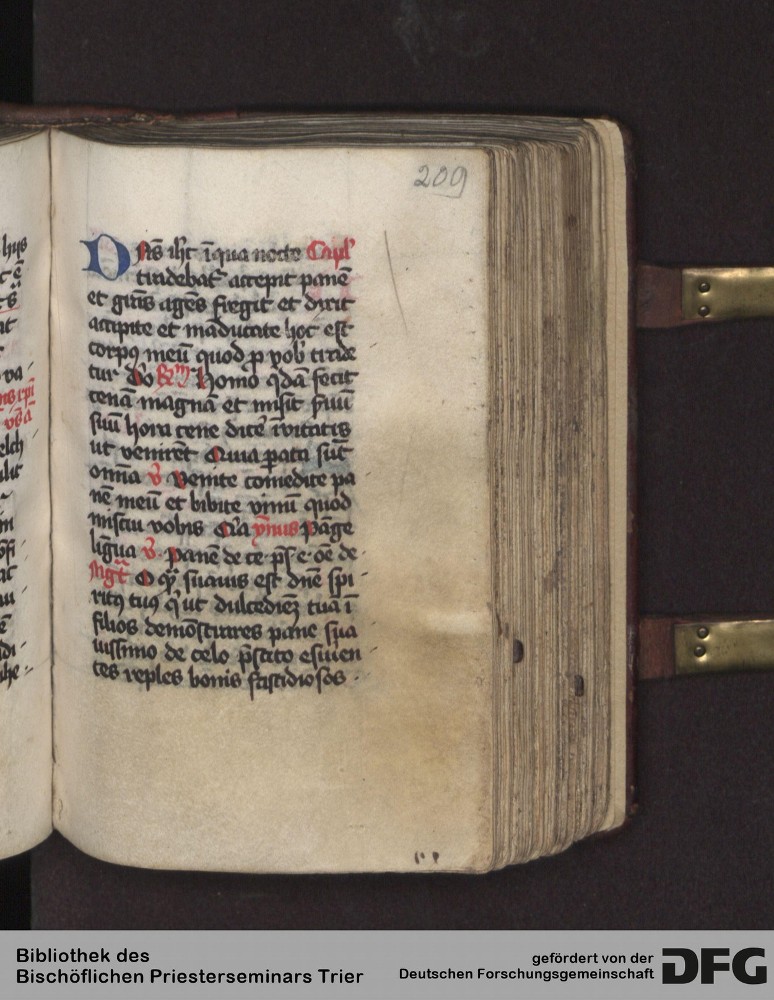 209
Dns ihc ī qua nocte Capl'
tradebat᷑ accepit panē
et grās agēs fregit et dixit
accipite et māducate hoc est
corpꝯ meū quod p vob' trade
tur do R᷑m homo qdā fecit
cenā magnā et misit suū
suū hora cene dic̄e īvitatis
ut venirēt Quia pata sūt
omīa v̄ Venite comedite pa
nē meū et bibite vinū quod
miscui vobis Qia ymnus Pāge
līgua v̄. Panē de ce psͤ. e. oē de
Mgt᷑ O qͣ suauis est dnē spi
ritꝯ tuꝯ q' ut dulcediēꝫ tuā ī
filios demōstrares pane sua
uissimo de celo p̄stito esurien
tes reples bonis fastidiosos
Bibliothek des
Bischöflichen Priesterseminars Trier
gefördert von der
Deutschen Forschungsgemeinschaft
DFG